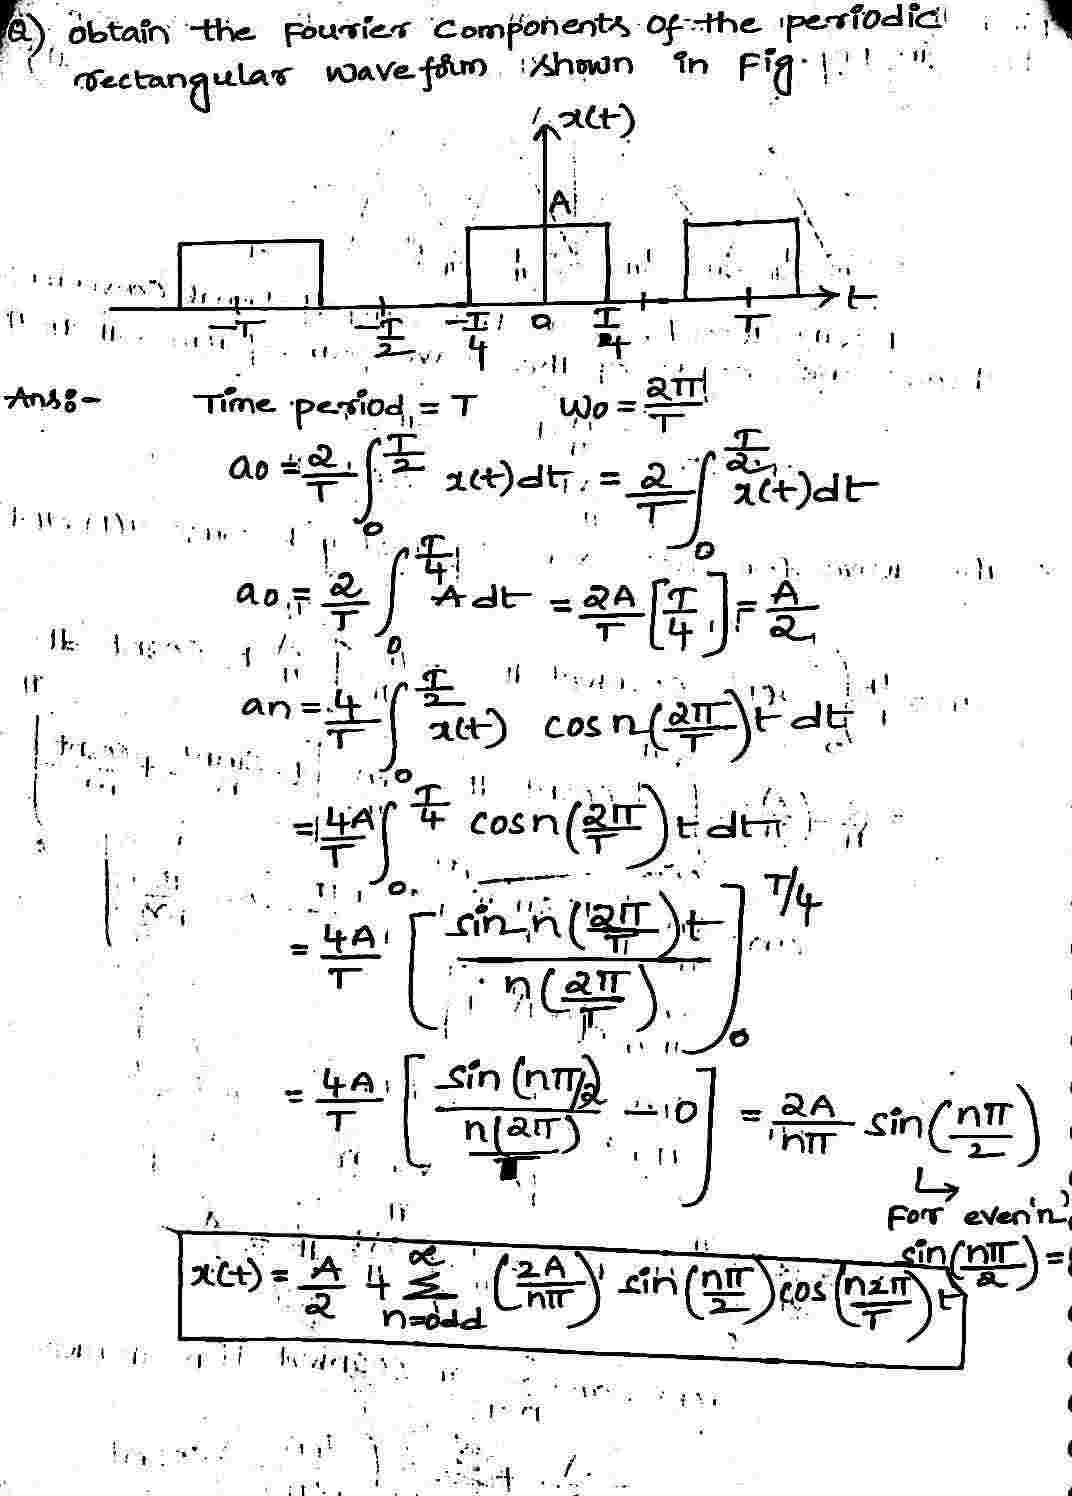 Q) obtain the Fourier Components of the periodic
rectangular waveform shown in Fig.
x(t)
A
-T -T/2 -T/4 0 T/4 T t
Ans:- Time period = T ω0 = 2π/T
a0 = 2/T ∫_0^{T/2} x(t) dt = 2/T ∫_0^{T/2} x(t) dt
a0 = 2/T ∫_0^{T/4} A dt = 2A/T [T/4] = A/2
an = 4/T ∫_0^{T/2} x(t) cos n(2π/T)t dt
= 4A/T ∫_0^{T/4} cos n(2π/T)t dt
= 4A/T [sin n(2π/T)t / n(2π/T)]_0^{T/4}
= 4A/T [sin (nπ/2) / n(2π/T) - 0] = 2A/nπ sin(nπ/2)
↳ For even 'n'
sin(nπ/2) =
x(t) = A/2 + ∑_{n=odd}^{∞} (2A/nπ) sin(nπ/2) cos(n2π/T)t